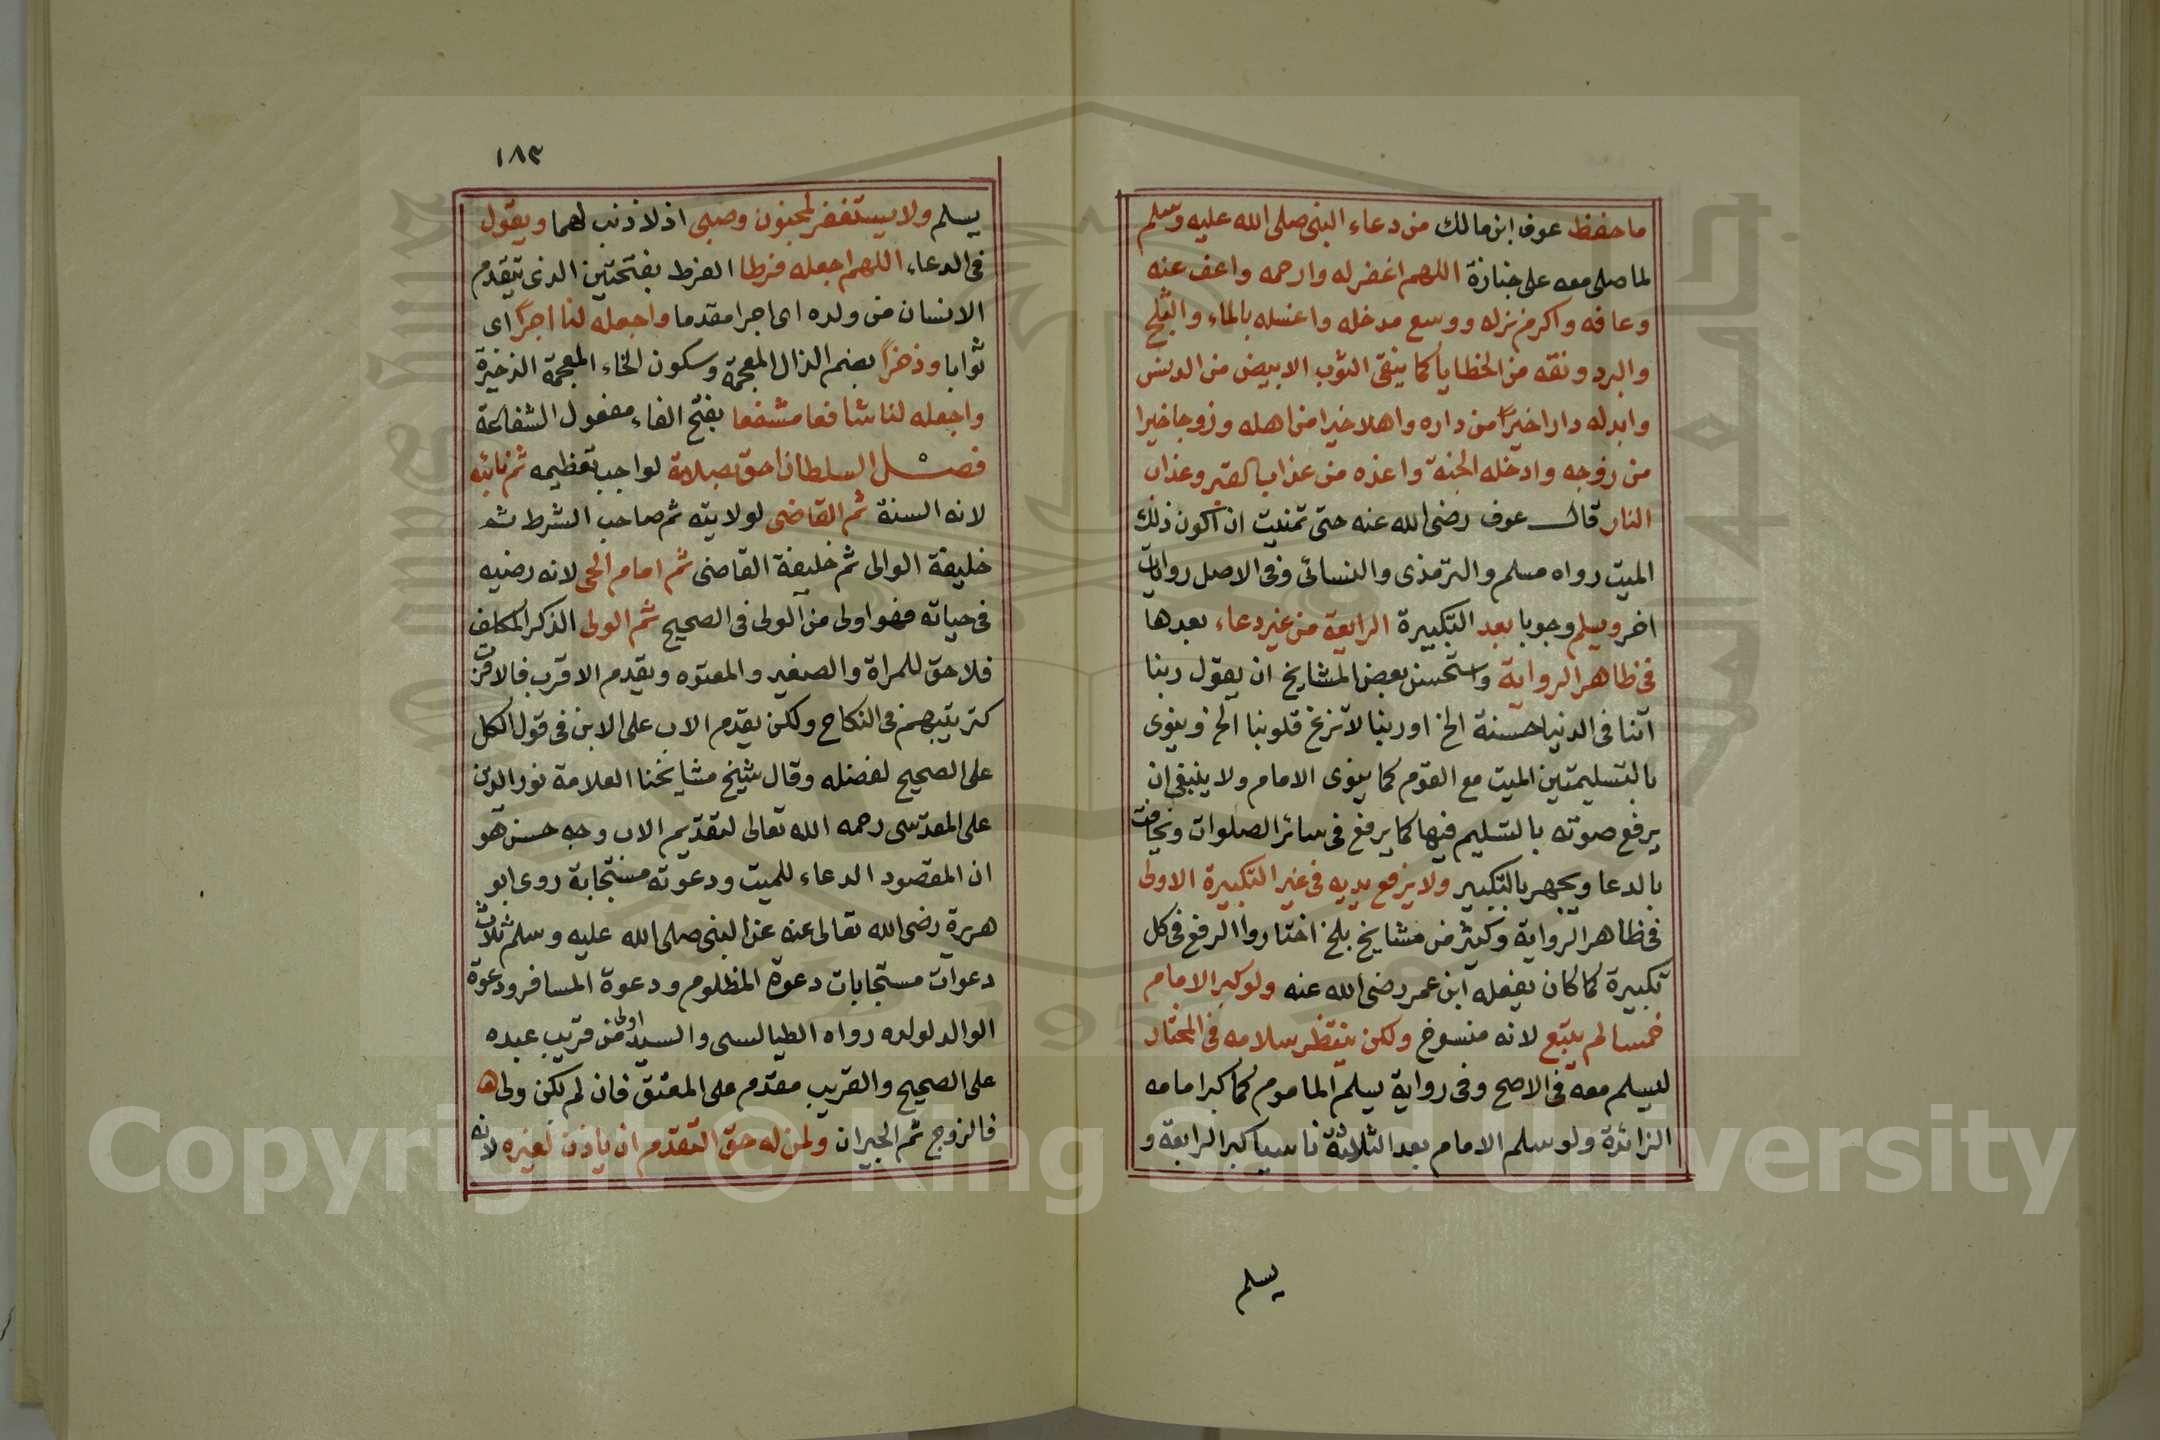 ما حفظ عوف ابن مالك من دعاء النبي صلى الله عليه وسلم
لما صلى معه على جنازة اللهم اغفر له وارحمه واعف عنه
وعافه واكرم نزله ووسع مدخله واغسله بالماء والثلج
والبرد ونقه من الخطايا كما ينقى الثوب الابيض من الدنس
وابدله دارا خيرا من داره واهلا خيرا من اهله وزوجا خيرا
من زوجه وادخله الجنة واعذه من عذاب القبر وعذاب
النار قال عوف رضى الله عنه حتى تمنيت ان اكون ذلك
الميت رواه مسلم والترمذى والنسائى وفى الاصل روايات
اخر ويسلم وجوبا بعد التكبيرة الرابعة من غير دعاء بعدها
فى ظاهر الرواية واستحسن بعض المشايخ ان يقول ربنا
آتنا فى الدنيا حسنة الخ او ربنا لا تزغ قلوبنا الخ وينوى
بالتسليمتين الميت مع القوم كما ينوى الامام ولا ينبغى ان
يرفع صوته بالتسليم فيها كما يرفع فى سائر الصلوات ويخافت
بالدعا ويجهر بالتكبير ولا يرفع يديه فى غير التكبيرة الاولى
فى ظاهر الرواية وكثير من مشايخ بلخ اختاروا الرفع فى كل
تكبيرة كما كان يفعله ابن عمر رضى الله عنه ولو كبر الامام
خمسا لم يتبع لانه منسوخ ولكن ينتظر سلامه فى المختار
ليسلم معه فى الاصح وفى رواية يسلم الماموم كما كبر امامه
الزائدة ولو سلم الامام بعد الثلاثة ناسيا كبر الرابعة و
يسلم
١٨٣
يسلم ولا يستغفر لمجنون وصبى اذ لا ذنب لهما ويقول
فى الدعاء اللهم اجعله فرطا الفرط بفتحتين الذى يتقدم
الانسان من ولده اى اجرا مقدما واجعله لنا اجرا اى
ثوابا وذخرا بضم الذال المعجمة وسكون الخاء المعجمة الذخيرة
واجعله لنا شافعا مشفعا بفتح الفاء مفعول الشفاعة
فصل السلطان احق بصلاته لواجب تعظيمه ثم نائبه
لانه السنة ثم القاضى لولايته ثم صاحب الشرط ثم
خليفة الوالى ثم خليفة القاضى ثم امام الحى لانه رضيه
فى حياته فهو اولى من الولى فى الصحيح ثم الولى الذكر المكلف
فلا حق للمراة والصغير والمعتوه ويقدم الاقرب فالاقرب
كترتيبهم فى النكاح ولكن يقدم الاب على الابن فى قول الكل
على الصحيح لفضله وقال شيخ مشايخنا العلامة نور الدين
على المقدسى رحمه الله تعالى لتقديم الاب وجه حسن هو
ان المقصود الدعاء للميت ودعوته مستجابة روى ابو
هريرة رضى الله تعالى عنه عن النبي صلى الله عليه وسلم ثلاث
دعوات مستجابات دعوة المظلوم ودعوة المسافر ودعوة
الوالد لولده رواه الطيالسى والسيد اولى من قريب عبده
على الصحيح والقريب مقدم على المعتق فان لم يكن ولى
فالزوج ثم الجيران ولمن له حق التقدم ان ياذن لغيره لانه
Copyright © King Saud University